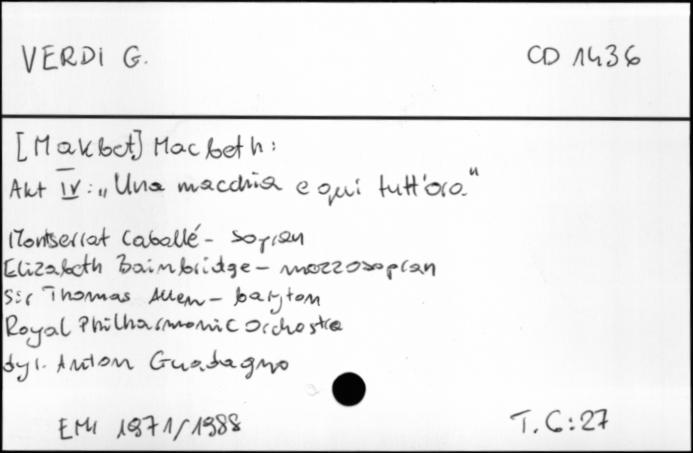 VERDI G.
CD 1436
[Makbet] Macbeth:
Akt IV: „Una macchia e qui tutt'ora"
Montserrat Caballé - sopran
Elizabeth Bainbridge - mezzosopran
Sir Thomas Allen - baryton
Royal Philharmonic Orchestra
dyr. Anton Guadagno
EMI 1971/1988
T. 6:27